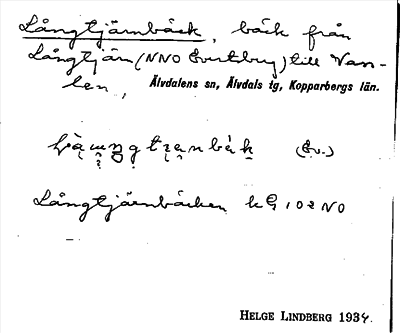 Långtjärnbäck, bäck från
Långtjärn (NNO Evertsberg) till Van-
len, Älvdalens sn, Älvdals tg, Kopparbergs län.
(Ev.)
Långtjärnbäcken kG 102 NO
HELGE LINDBERG 1934.